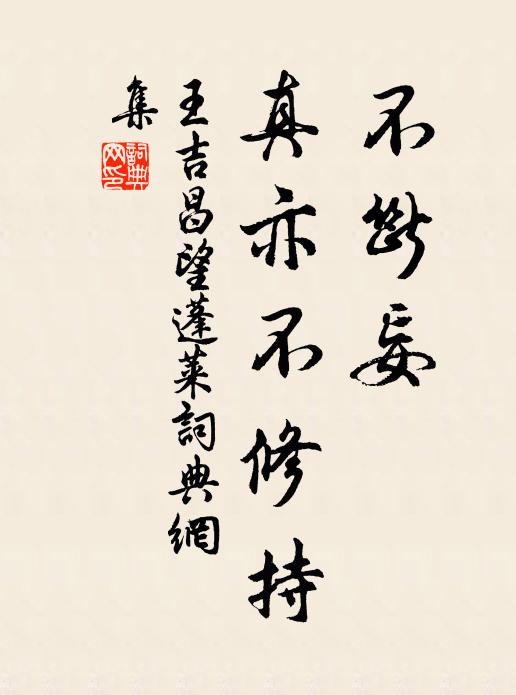 不斷妄
真亦不修持
王吉昌望蓬萊詞典網
集
詞典
网印